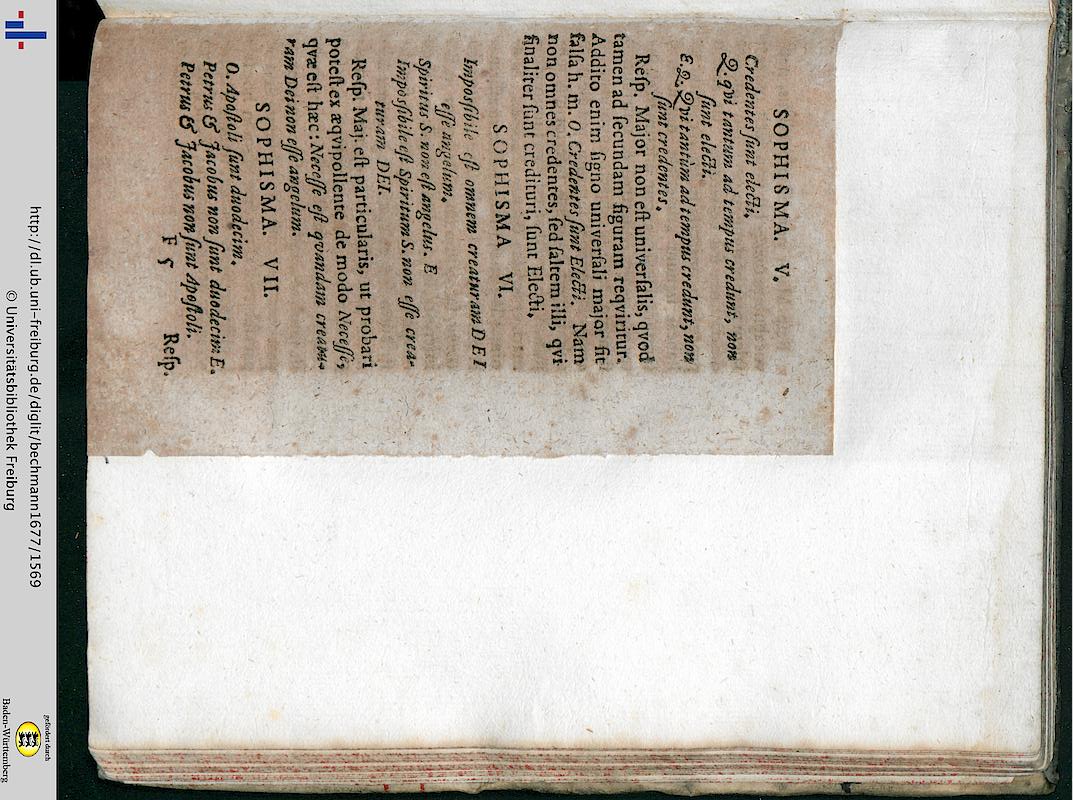 SOPHISMA. V.
Credentes ſunt electi,
Q. qvi tantum ad tempus credunt, non
ſunt electi.
E. Q. Qvi tantùm ad tempus credunt, non
ſunt credentes.
Reſp. Major non eſt univerſalis, qvod
tamen ad ſecundam figuram reqviritur.
Addito enim ſigno univerſali major fit
falſa h. m. O. Credentes ſunt Electi. Nam
non omnes credentes, ſed ſaltem illi, qvi
finaliter ſunt credituri, ſunt Electi.
SOPHISMA VI.
Impoſsibile eſt omnem creaturam DEI
eſſe angelum.
Spiritus S. non eſt angelus. E
Impoſsibile eſt Spiritum S. non eſſe crea-
turam DEI.
Reſp. Maj. eſt particularis, ut probari
poteſt ex æqvipollente de modo Neceſſe,
qvæ eſt hæc: Neceſſe eſt qvandam creatu-
ram Dei non eſſe angelum.
SOPHISMA. VII.
O. Apoſtoli ſunt duodecim.
Petrus & Jacobus non ſunt duodecim E.
Petrus & Jacobus non ſunt Apoſtoli.
F 5 Reſp.
http://dl.ub.uni-freiburg.de/diglit/bechmann1677/1569
© Universitätsbibliothek Freiburg
gefördert durch
Baden-Württemberg